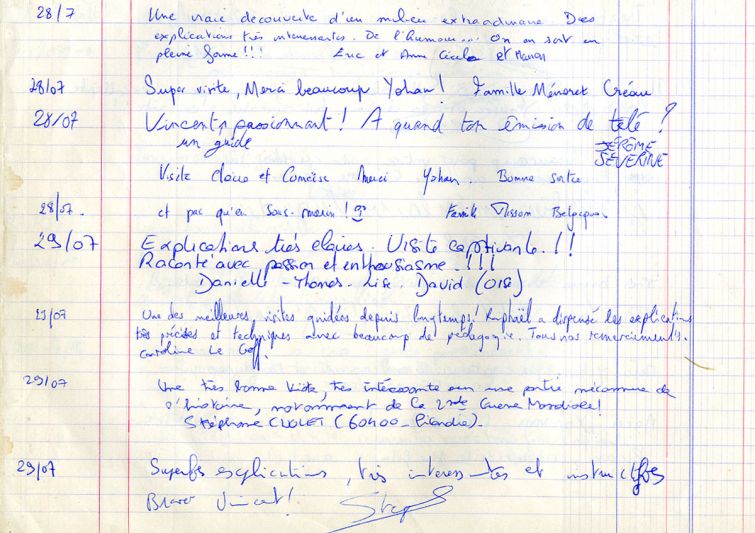 28/7 Une vraie découverte d'un milieu extraordinaire. Des
explications très intéressantes. De l'humour... On en sort en
pleine forme!!! Luc et Anne Cécile et Manon
28/07 Super visite, Merci beaucoup Yohan! Famille Ménoret Créau
28/07 Vincent, passionnant! A quand ton émission de télé?
un guide JÉRÔME
SÉVERINE
Visite claire et Concise Merci Yohan. Bonne sortie
28/07. et pas qu'en Sous-marin! Famille Belgique
29/07 Explications très claires. Visite captivante.!!
Raconté avec passion et enthousiasme.!!!
Danielle - Thomas. Lise. David (OISE)
29/07 Une des meilleures visites guidées depuis longtemps! Raphaël a dispensé les explications
très précises et techniques avec beaucoup de pédagogie. Tous nos remerciements.
Caroline Le Goff.
29/07 Une très bonne visite, très intéressante sur une partie méconnue de
l'histoire, notamment de la 2nde Guerre Mondiale!
Stéphane (60400
29/07 Superbes explications, très intéressantes et instructives
Bravo Vincent!